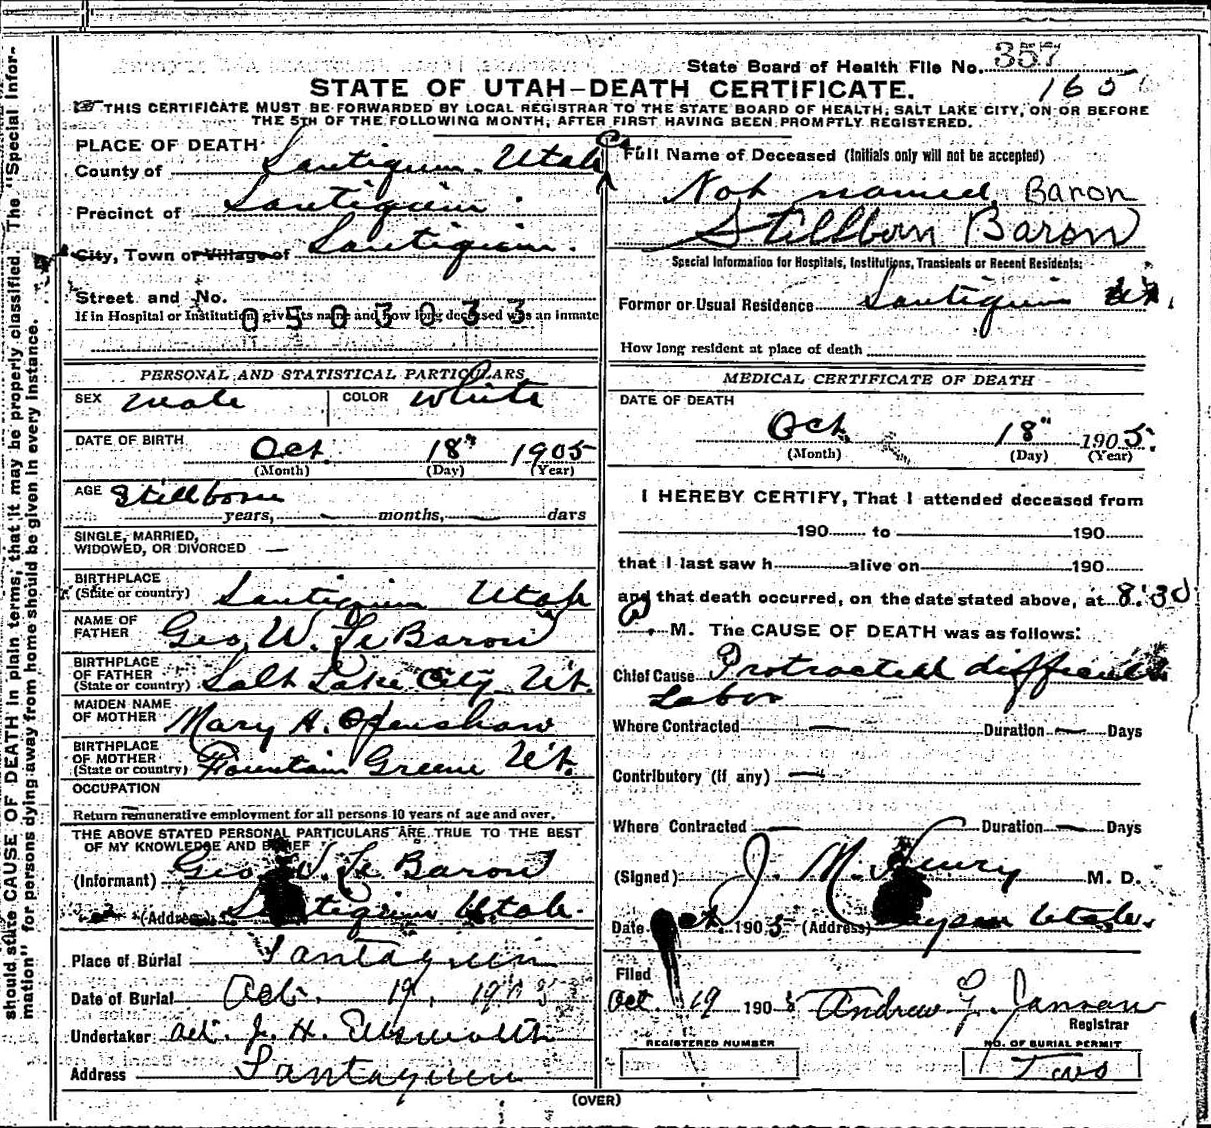 State Board of Health File No. 357
165
STATE OF UTAH-DEATH CERTIFICATE.
THIS CERTIFICATE MUST BE FORWARDED BY LOCAL REGISTRAR TO THE STATE BOARD OF HEALTH, SALT LAKE CITY, ON OR BEFORE
THE 5TH OF THE FOLLOWING MONTH, AFTER FIRST HAVING BEEN PROMPTLY REGISTERED.
should state CAUSE OF DEATH in plain terms, that it may be properly classified. The "Special Infor-
mation" for persons dying away from home should be given in every instance.
PLACE OF DEATH
County of Santiquin. Utah
Precinct of Santiquin
City, Town or Village of Santiquin.
Street and No.
If in Hospital or Institution, give its name and how long deceased was an inmate
0503033
PERSONAL AND STATISTICAL PARTICULARS
SEX Male COLOR White
DATE OF BIRTH Oct 18" 1905
(Month) (Day) (Year)
AGE Stillborn
years, months, days
SINGLE, MARRIED,
WIDOWED, OR DIVORCED —
BIRTHPLACE
(State or country) Santiquin Utah
NAME OF
FATHER Geo. W. Le Baron
BIRTHPLACE
OF FATHER
(State or country) Salt Lake City Ut.
MAIDEN NAME
OF MOTHER Mary H. Openshaw
BIRTHPLACE
OF MOTHER
(State or country) Fountain Greene Ut.
OCCUPATION
Return remunerative employment for all persons 10 years of age and over.
THE ABOVE STATED PERSONAL PARTICULARS ARE TRUE TO THE BEST
OF MY KNOWLEDGE AND BELIEF
(Informant) Geo W. Le Baron
(Address) Santiquin Utah.
Place of Burial Santaquin
Date of Burial Oct. 19, 1905
Undertaker act. J. H. Ellsworth
Address Santaquin
Full Name of Deceased (Initials only will not be accepted)
Not named Baron
Stillborn Baron
Special Information for Hospitals, Institutions, Transients or Recent Residents:
Former or Usual Residence Santiquin Ut.
How long resident at place of death
MEDICAL CERTIFICATE OF DEATH
DATE OF DEATH
Oct 18" 1905.
(Month) (Day) (Year)
I HEREBY CERTIFY, That I attended deceased from
190 to 190
that I last saw h alive on 190
and that death occurred, on the date stated above, at 8:30
M. The CAUSE OF DEATH was as follows:
Chief Cause Protracted difficult
Labor
Where Contracted — Duration — Days
Contributory (if any) —
Where Contracted — Duration — Days
(Signed) J. M. Henry M. D.
Date Oct. 1905 (Address) Payson Utah.
Filed
Oct 19 1905 Andrew G. Jansan
Registrar
REGISTERED NUMBER
NO. OF BURIAL PERMIT
Two
(OVER)